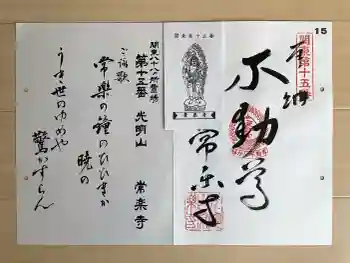 15
関東第十五番
奉納
不動尊
常楽寺
関東八十八ヶ所霊場
第十五番 光明山 常楽寺
ご詠歌
常樂の鐘のひびきか
暁の
うき世のゆめや
驚かすらん